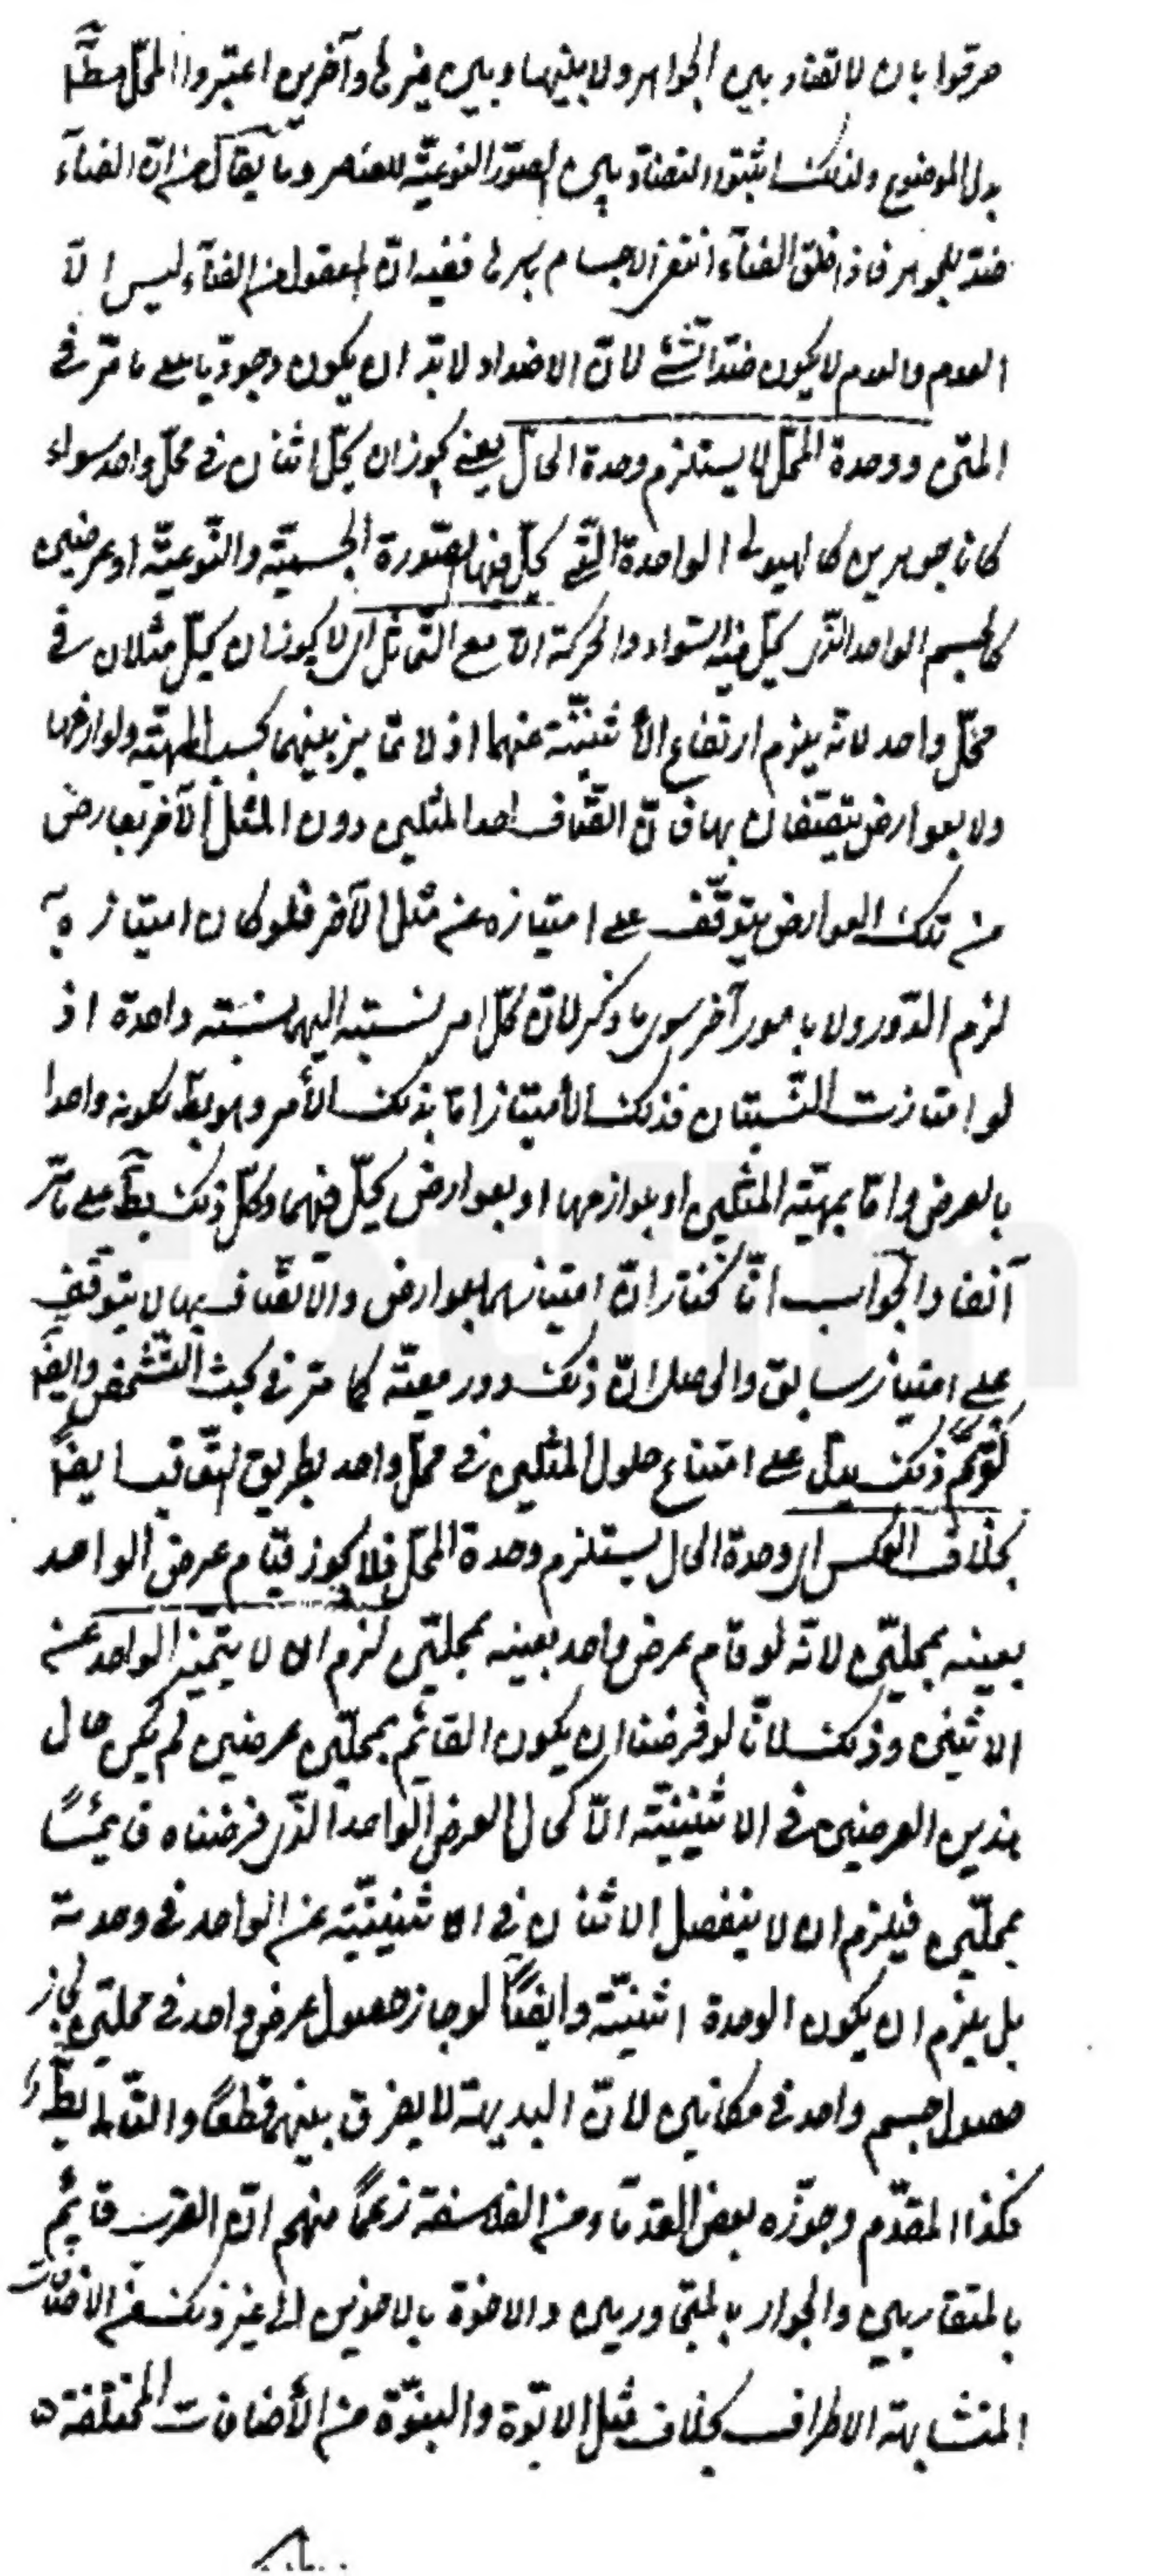 صرحوا بان لا تضاد بين الجواهر ولا بينها وبين غيرها وآخرين اعتبروا المحل مطلقا
بدل الموضوع ولذلك اثبتوا التضاد بين الصور النوعيّة للعناصر وما يقال من انّ الفناء
ضدّ للجواهر فاذا خلق الفناء انتفى الاجسام باسرها ففيه انّ المعقول من الفناء ليس الّا
العدم والعدم لا يكون ضدّا لشئ لانّ الاضداد لا بدّ ان يكون وجوديا على ما مرّ في
المتن ووحدة المحلّ لا يستلزم وحدة الحالّ يعني يجوز ان يحلّ اثنان في محلّ واحد سواء
كانا جوهرين كالهيولى الواحدة الّتي يحلّ فيها الصّورة الجسميّة والنّوعيّة او عرضين
كالجسم الواحد الّذي يحلّ فيه السّواد والحركة الّا مع التّماثل اي لا يجوز ان يحلّ مثلان في
محلّ واحد لانّه يلزم ارتفاع الأثنينيّة عنهما اذ لا تمايز بينهما بحسب المهيّة ولوازمها
ولا بعوارض يتصفان بها فانّ اتّصاف احد المثلين دون المثل الآخر بعارض
من تلك العوارض يتوقّف على امتيازه عن مثل الآخر فلو كان امتيازه به
لزم الدّور ولا بامور آخر سوى ما ذكر لانّ كلّ امر نسبته اليهما نسبة واحدة اذ
لو امتازت النّسبتان فذلك الأمتياز امّا بذلك الأمر وهو بط لكونه واحدا
بالعرض وامّا بمهيّة المثلين او بلوازمها او بعوارض يحلّ فيهما وكلّ ذلك بط على ما مرّ
آنفا والجواب انّا نختار انّ امتيازهما بالعوارض والاتّصاف بها لا يتوقّف
على امتياز سابق والحاصل انّ ذلك دور معيّة كما مرّ في بحث التّشخّص وايضا
لو تمّ ذلك يدلّ على امتناع حلول المثلين في محلّ واحد بطريق التّعاقب ايضاً
بخلاف العكس اي وحدة الحال يستلزم وحدة المحلّ فلا يجوز قيام عرض الواحد
بعينه بمحلّين لانّه لو قام عرض واحد بعينه بمحلّين لزم ان لا يتميّز الواحد عن
الاثنين وذلك لانّا لو فرضنا ان يكون القائم بمحلّين عرضين لم يكن حال
هذين العرضين في الاثنينيّة الّا كحال العرض الواحد الّذي فرضناه قائماً
بمحلّين فيلزم ان لا ينفصل الاثنان في الاثنينيّة عن الواحد في وحدته
بل يلزم ان يكون الوحدة اثنينيّة وايضاً لو جاز حصول عرض واحد في محلّين لجاز
حصول جسم واحد في مكانين لانّ البديهة لا يفرق بينهما قطعاً والتّالي بط
فكذا المقدّم وجوّزه بعض القدماء من الفلاسفة زعماً منهم انّ القرب قائم
بالمتقاربين والجوار بالمتجاورين والاخوة بالاخوين الى غير ذلك من الاضافات
المتشابهة الاطراف بخلاف مثل الابوّة والبنوّة من الأضافات المختلفة